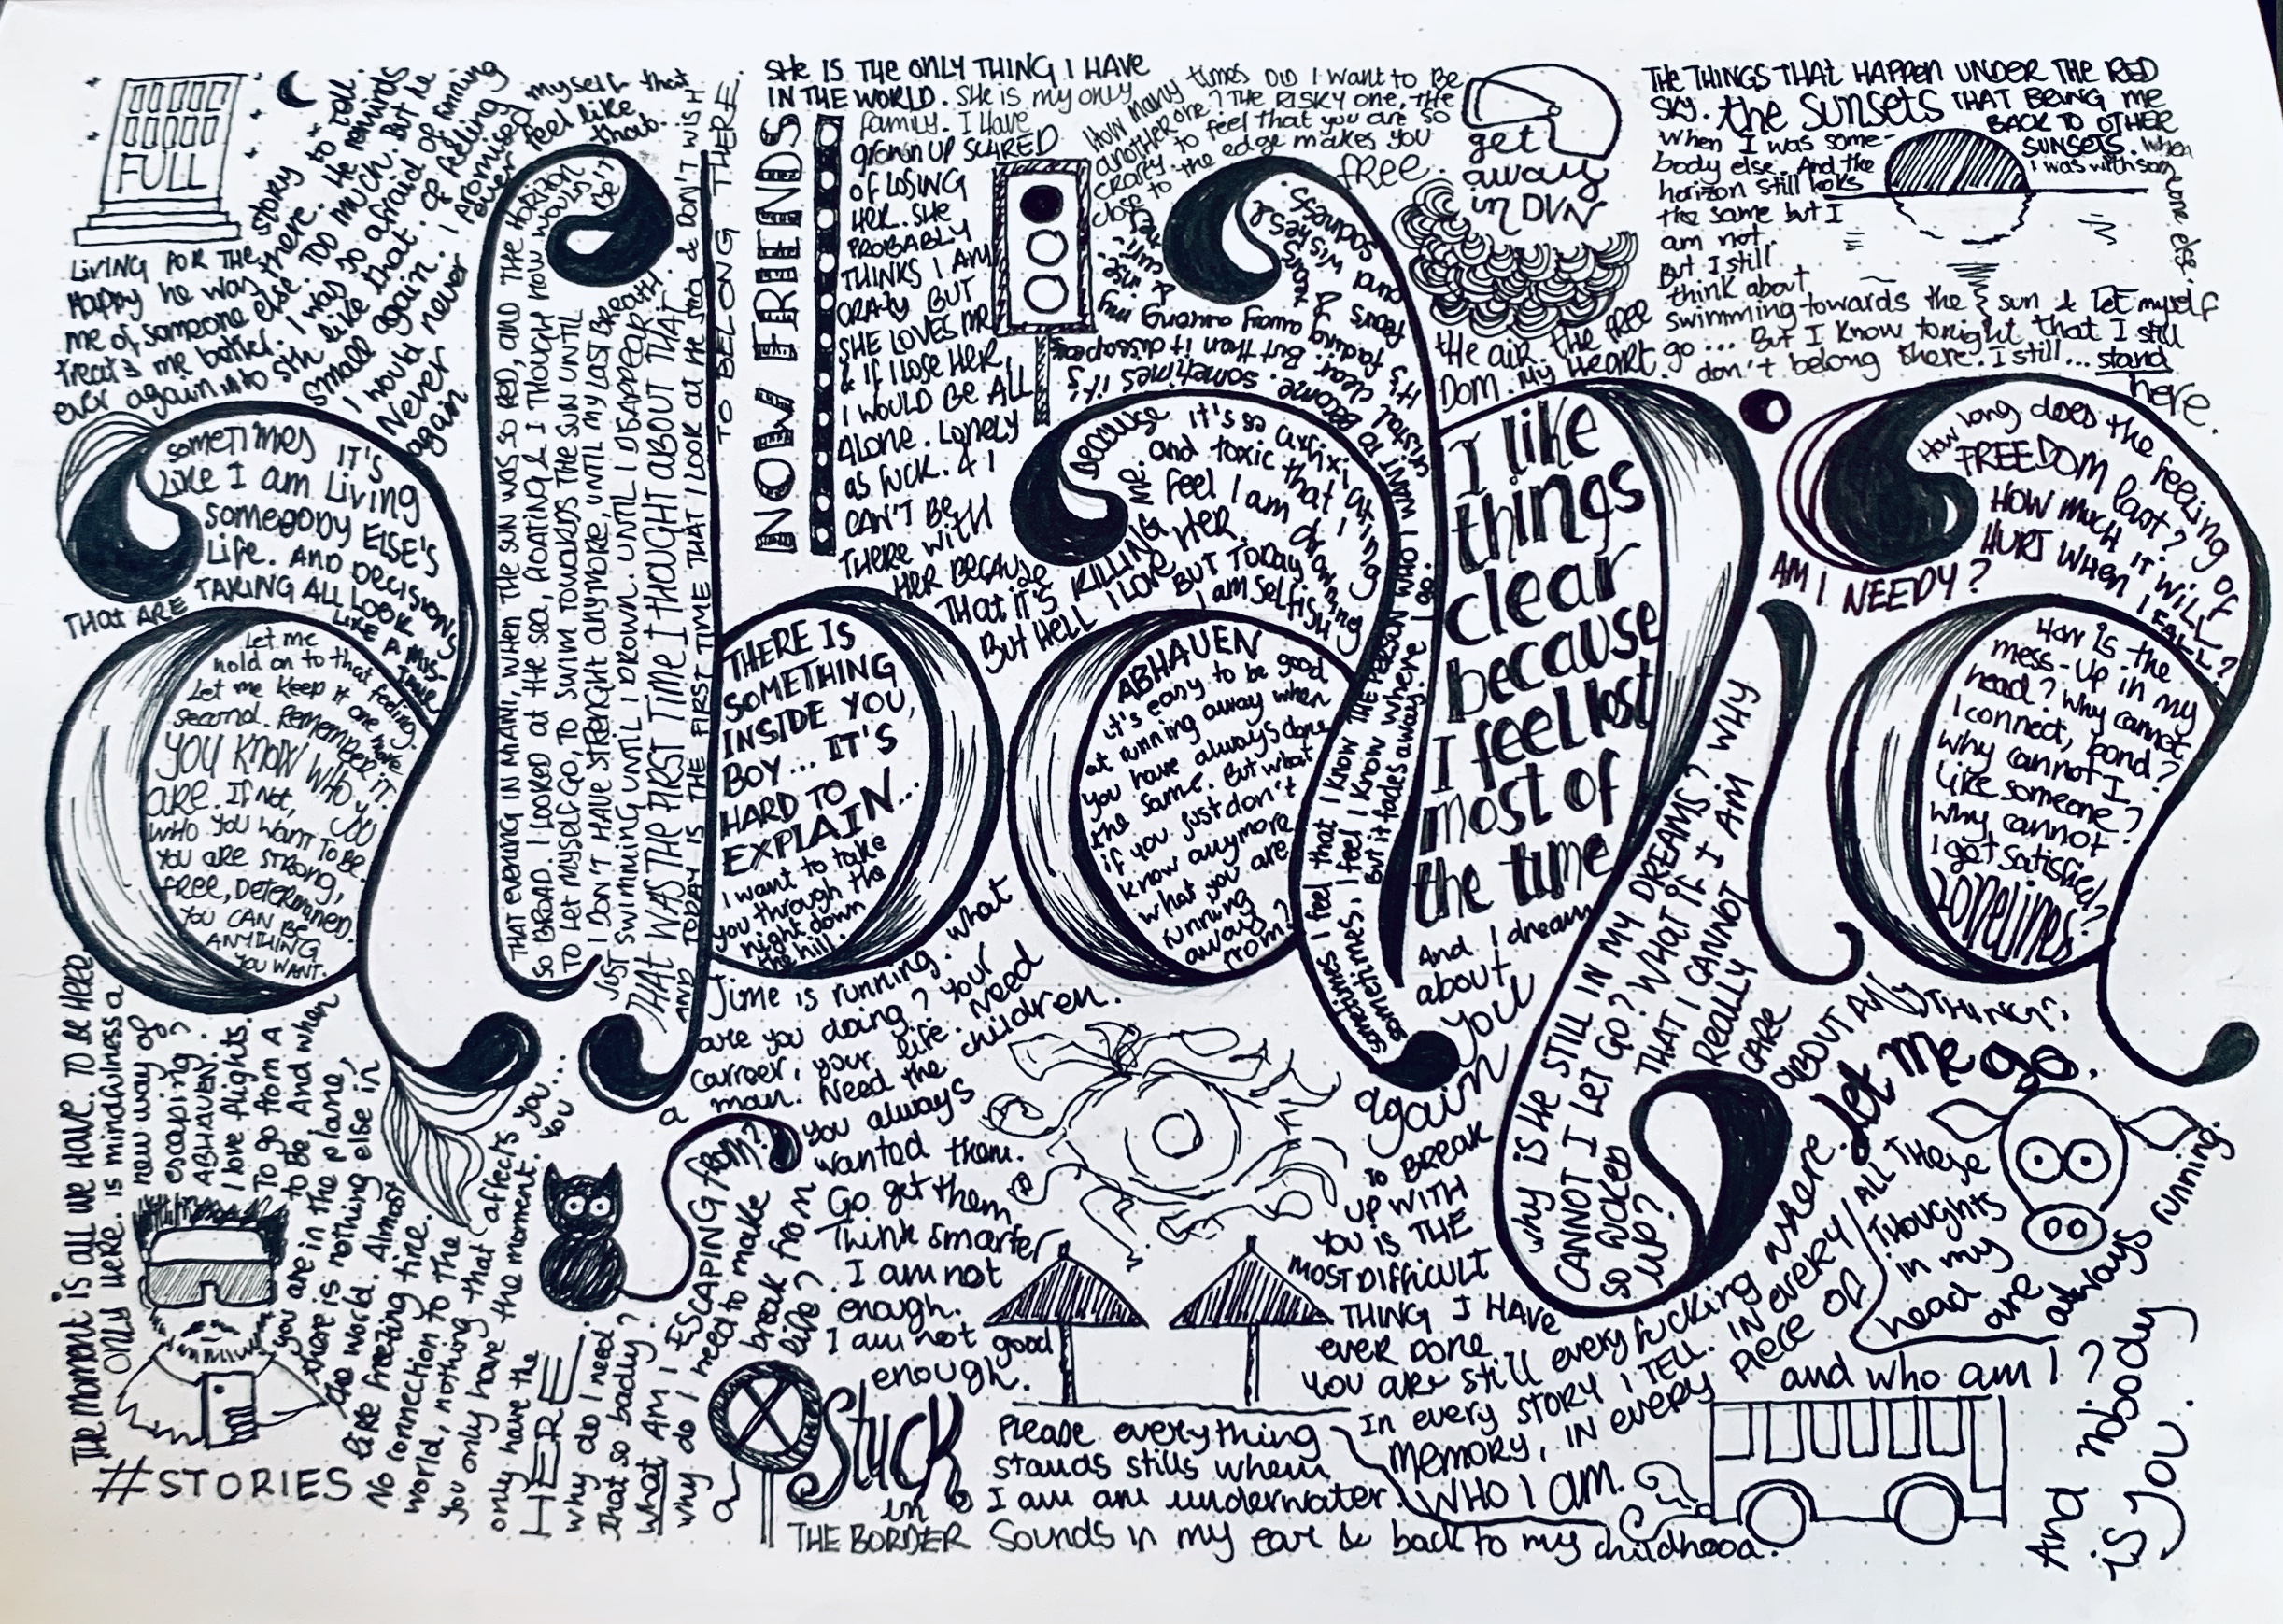 FULL
LIVING FOR THE STORY TO TELL.
Happy he was there. He reminds
me of someone else. TOO MUCH. But he
treats me better. I was so afraid of falling
ever again into sth like that. Of feeling
small again. I promised myself that
I would never ever feel like
Never that.
again
SOMETIMES IT'S
LIKE I am Living
SOMEBODY ELSE'S
Life. AND DECISIONS
THAT ARE TAKING ALL LOOK
LIKE A MIS-
TAKE
Let me
hold on to that feeling.
Let me keep it one more
second. REMEMBER IT.
YOU KNOW WHO YOU
ARE. If Not,
WHO YOU WANT TO BE.
YOU ARE STRONG,
FREE, DETERMINED.
YOU CAN BE
ANYTHING
YOU WANT.
THAT EVENING IN MIAMI, WHEN THE SUN WAS SO RED, AND THE HORIZON
SO BROAD. I LOOKED AT THE SEA, FLOATING & I THOUGH HOW WOULD BE IT
TO LET MYSELF GO, TO SWIM TOWARDS THE SUN UNTIL
I DON'T HAVE STRENGHT ANYMORE, UNTIL MY LAST BREATH.
JUST SWIMMING UNTIL I DROWN. UNTIL I DISAPPEAR.
THAT WAS THE FIRST TIME I THOUGHT ABOUT THAT.
AND TODAY IS THE FIRST TIME THAT I LOOK AT HE SEA & DON'T WISH
TO BELONG THERE.
NOW FRIENDS
SHE IS THE ONLY THING I HAVE
IN THE WORLD. SHE is my only
family. I HAVE
grown UP SCARED
OF LOSING
HER. SHE
PROBABLY
THINKS I AM
CRAZY BUT
SHE LOVES ME
& IF I LOSE HER
I WOULD BE ALL
ALONE. LONELY
as FUCK. & I
CAN'T BE
THERE WITH
HER BECAUSE
THAT IT'S KILLING ME.
But HELL I LOVE HER.
BUT TODAY
I am selfish
because it's so
and toxic that I
feel I am drowning
How many times DID I WANT to BE
another one? THE RISKY one, THE
crazy to feel that you are so
close to the edge makes you
free.
get
away
in DVN
THE AIR. THE FREE
DOM. MY HEART.
Sometimes I feel that I know THE PERSON WHO I WANT TO BECOME. Sometimes it's
sometimes I feel I know where I go.
But it fades away.
THERE IS
SOMETHING
INSIDE YOU,
BOY... IT'S
HARD TO
EXPLAIN...
I want to take
you through the
night down
the hill.
ABHAUEN
it's easy to be good
at running away when
you have always done
the same. But what
if you just don't
know anymore
what you are
running
away
from?
I like
things
clear
because
I feel lost
most of
the time
And I dream
about
you
again
THE THINGS THAT HAPPEN UNDER THE RED
SKY. The SUNSETS THAT BRING ME
BACK TO OTHER
SUNSETS. When
I was with someone else.
When I was some-
body else. And the
horizon still looks
the same but I
am not.
But I still
think about
swimming towards the sun & Let myself
go... But I Know tonight that I still
don't belong there. I still... stand
here.
AM I NEEDY?
How long does the feeling of
FREEDOM last?
HOW MUCH IT WILL
HURT WHEN I FALL?
How is the
mess-up in my
head? Why cannot
I connect, bond?
Why cannot I
like someone?
Why cannot
I get satisfied?
LONELINESS
WHY IS HE STILL IN MY DREAMS? WHY
CANNOT I LET GO? WHAT IF I AM
SO FUCKED UP? THAT I CANNOT
REALLY
CARE
ABOUT ANYTHING?
Let me go.
THE MOMENT IS all WE HAVE. TO BE HERE
only HERE. is mindfulness a
new way of
escaping?
ABHAUEN.
I love flights.
To go from A
to B. And when
you are in the plane,
there is nothing else in
the world. Almost
like freezing time.
No connection to the
world, nothing that affects you...
You only have the moment. You
only have the
HERE.
#STORIES
why do I need
that so badly?
What AM I ESCAPING FROM?
Why do I need to make
a break from
life?
Time is running. What
are you doing? Your
carreer, your life. Need
a man. Need the children.
You always
wanted them.
Go get them
Think smarter
I am not
enough.
I am not good
enough.
Stuck
in
THE BORDER
Please everything
stands stills when
I am underwater.
Sounds in my ear & back to my childhood.
TO BREAK
UP WITH
YOU IS THE
MOST DIFFICULT
THING I HAVE
ever DONE
YOU ARE still every fucking where.
In every STORY I TELL. IN EVERY
MEMORY, IN EVERY PIECE OF
WHO I AM.
ALL THESE
THOUGHTS
in my
head
are
always running.
and who am I?
And nobody
is you.